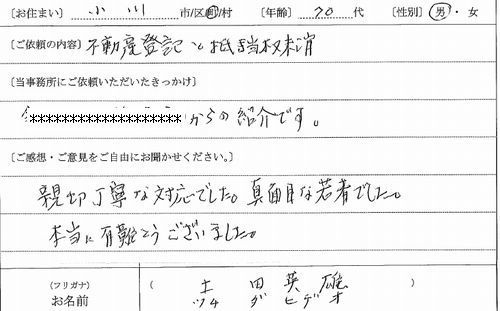 ［お住まい］ 小川 市/区/町/村 ［年齢］ 70 代 ［性別］ 男・女
［ご依頼の内容］ 不動産登記と抵当権抹消
［当事務所にご依頼いただいたきっかけ］
******************** からの紹介です。
［ご感想・ご意見をご自由にお聞かせください。］
親切丁寧な対応でした。真面目な若者でした。
本当に有難とうございました。
（フリガナ） （ 土田英雄 ）
お名前 ツチダヒデオ